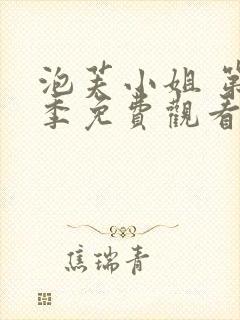 泡芙小姐 第
季免費觀看
焦瑞青